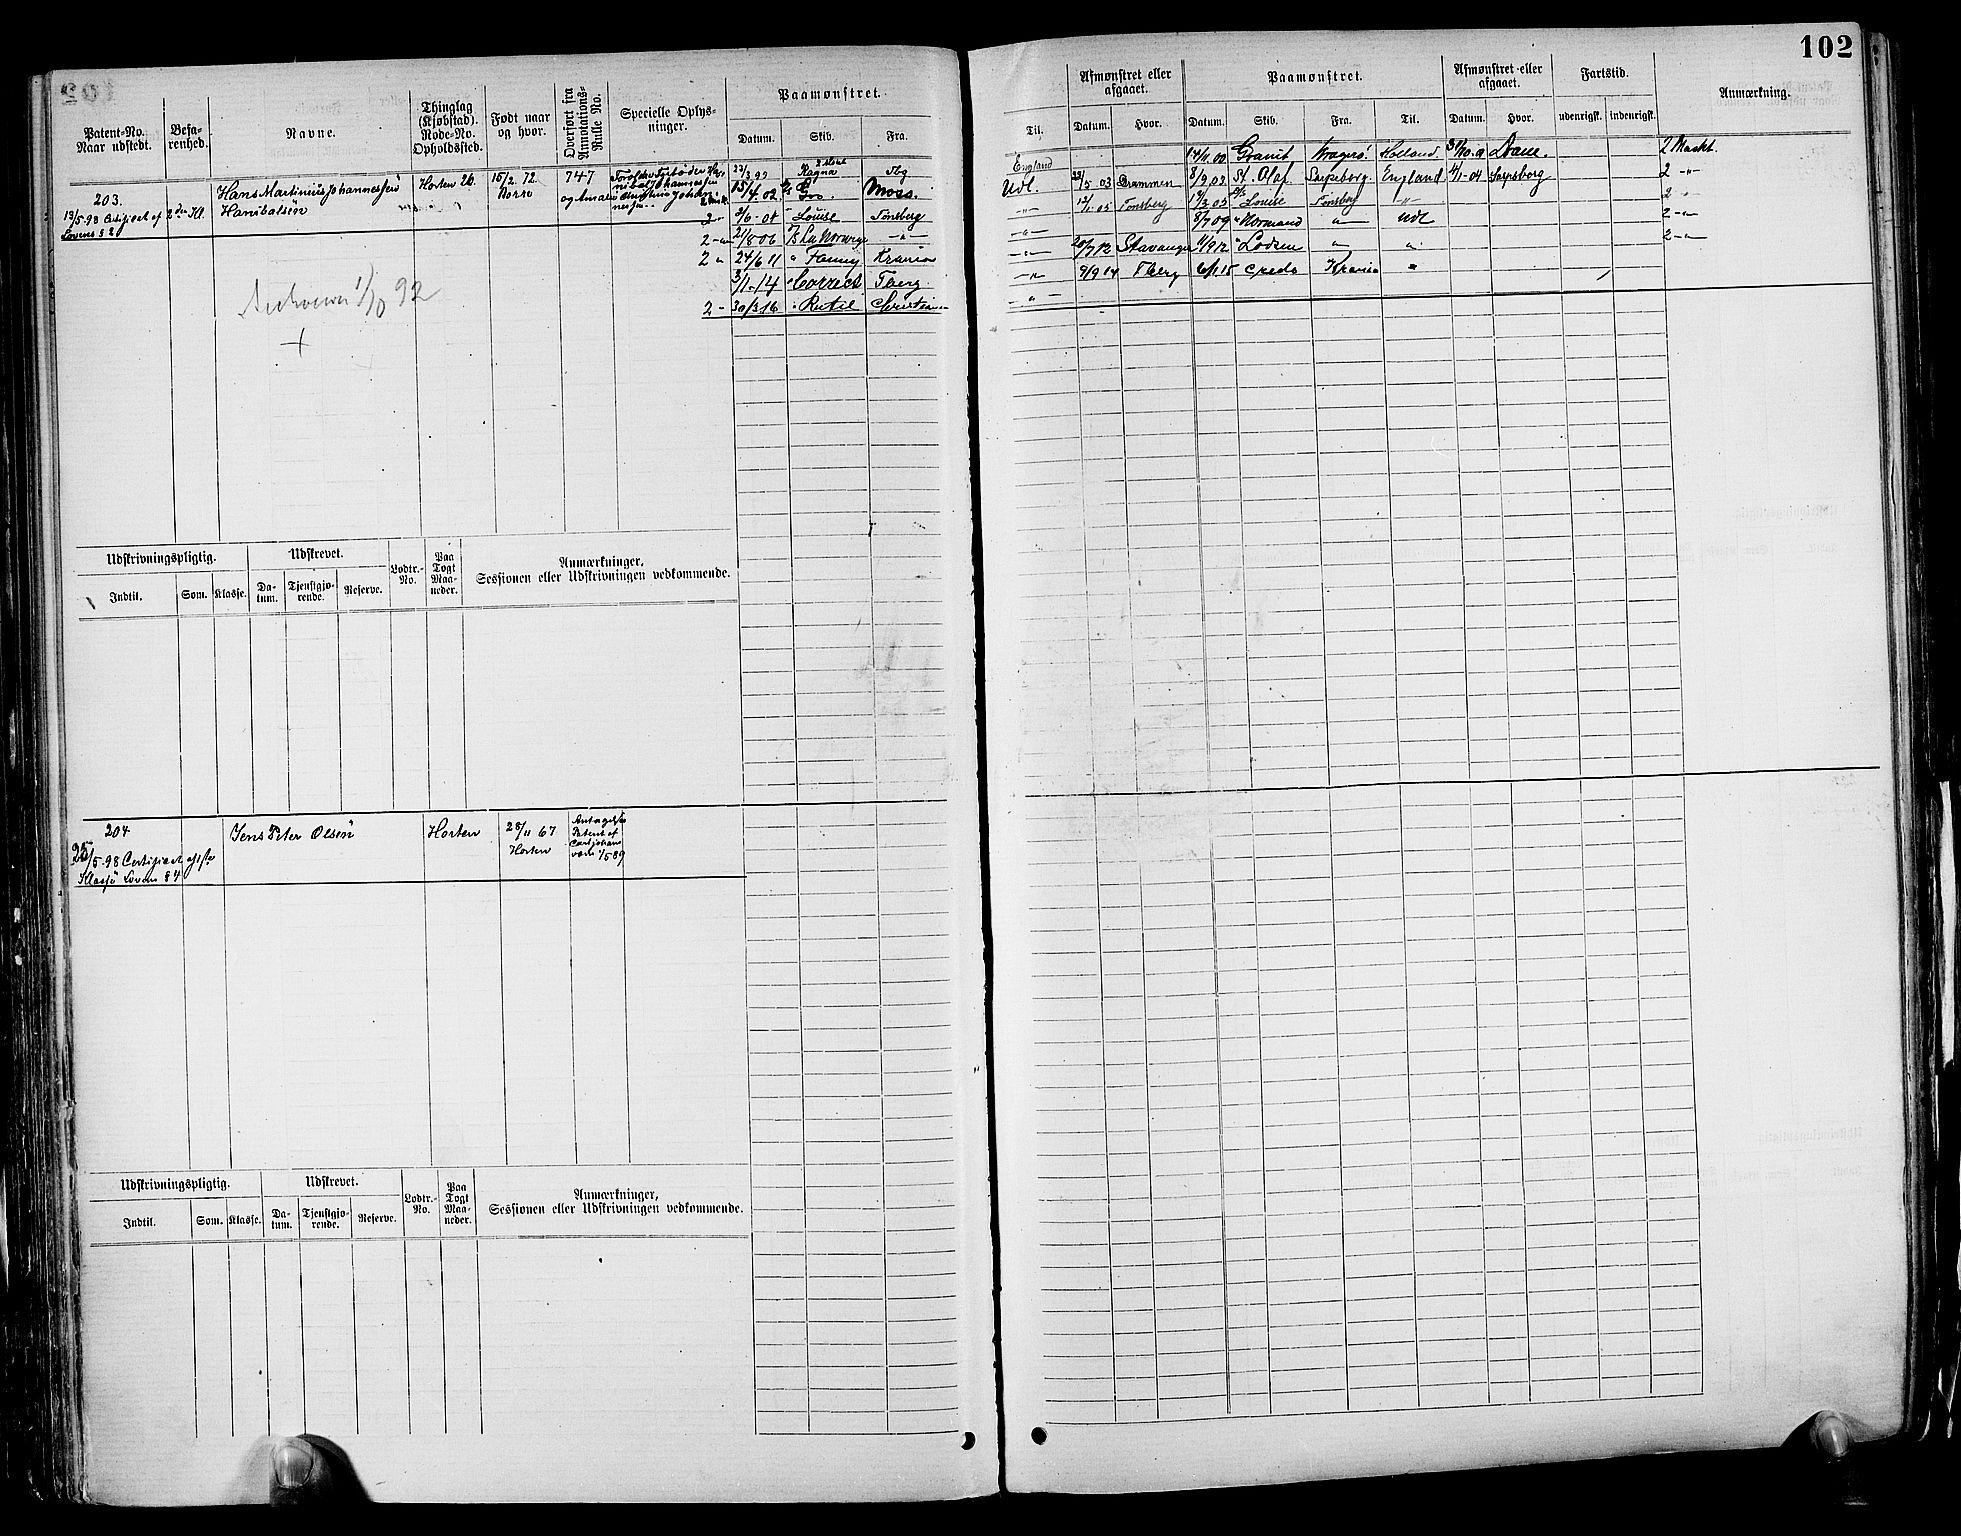 102
Patent-No.
Naar udstedt.
Befa-
renhed.
Navne.
Thinglag
(Kjøbstad).
Rode-No.
Opholdssted.
Født naar
og hvor.
Overført fra
Annotations-
Rulle No.
Specielle Oplys-
ninger.
Paamønstret.
Datum. Skib. Fra.
203.
13/5 98 Certificat af
Lovens § 2
2den Kl.
Hans Martinius Johannessen
Hanibalsen
Horten 26.
15/2 72
Borre
747
og Amalie
23/3 99 Ragna Tbg
15/4 02 Gro. Moss.
2 3/6-04 Louise Tønsberg
2 -"- 21/8 06 La Norvege -"-
2 " 24/6 11 " Fanny Krania
3/1-14 " Correct Tberg.
2 - 30/3 16 " Rutil Christiania
1/10 92
+
Udskrivningspligtig.
Indtil. Som. Klasse.
Udskrevet.
Da-
tum.
Tjenstgjø-
rende.
Reserve.
Lodtr.-
No.
Paa
Togt
Maa-
neder.
Anmærkninger,
Sessionen eller Udskrivningen vedkommende.
204
25/5-98 Certificat af 1ste
Klasse Lovens § 4
Jens Peter Olsen
Horten
28/11 67
Horten
Patent af
Carljohans
værn 1/5 89
Udskrivningspligtig.
Indtil. Som. Klasse.
Udskrevet.
Da-
tum.
Tjenstgjø-
rende.
Reserve.
Lodtr.-
No.
Paa
Togt
Maa-
neder.
Anmærkninger,
Sessionen eller Udskrivningen vedkommende.
Til.
Afmønstret eller
afgaaet.
Datum. Hvor.
Paamønstret.
Datum. Skib. Fra. Til.
Afmønstret eller
afgaaet.
Datum. Hvor.
Fartstid.
udenrigsk. indenrigsk.
Anmærkning.
England 14/11 00 Granit Kragerø. Holland. 2 Maskt.
Udl. 23/5 03 Drammen 8/9 03 St. Olaf Sarpsborg. England 4/1-04 Sarpsborg 2 -"-
-"- 12/1 05 Tønsberg 17/3 05 Louise Tønsberg -"- 2 -"-
-"- 8/7 09 " Normand " Udl 2 -"-
-"- 20/7 12 Stavanger 11/9 12 " Lodsen " " 2 -"-
-"- 9/9 14 Tberg 6/1 15 " Credo Krania "
-"-